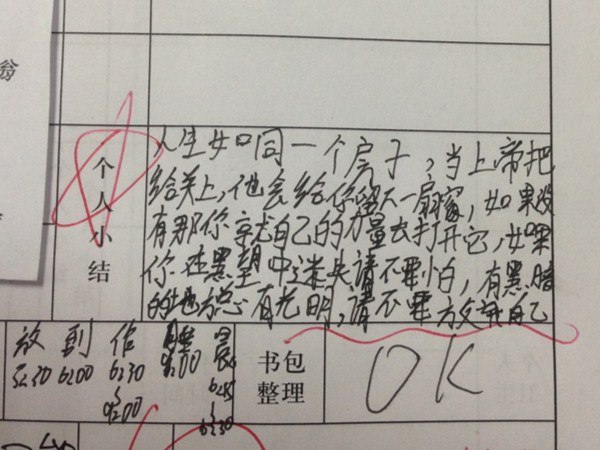 个人小结
人生如同一个房子,当上帝把
给关上,他会给你留下一扇窗,如果没
有那你就自己的力量去打开它,如果
你在黑望中迷失请不要怕,有黑暗
的地方总心有光明,请不要放弃自己
放 到 作
5:30 6:00 6:30
9:00 9:00 6:25
6:30
书包
整理
OK